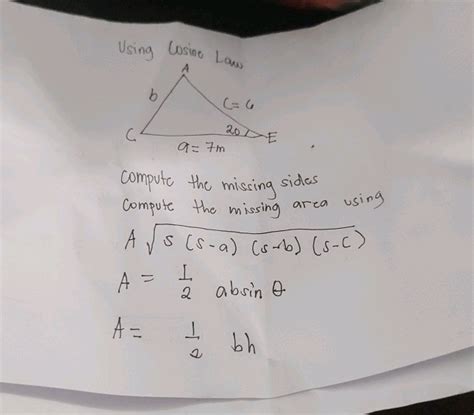 Using Cosine Law
A
b
C= 6
C
20
E
a= 7m
Compute the missing sides
Compute the missing area using
A √S (S-a) (s-b) (s-C)
A = 1/2 absin θ
A = 1/2 bh